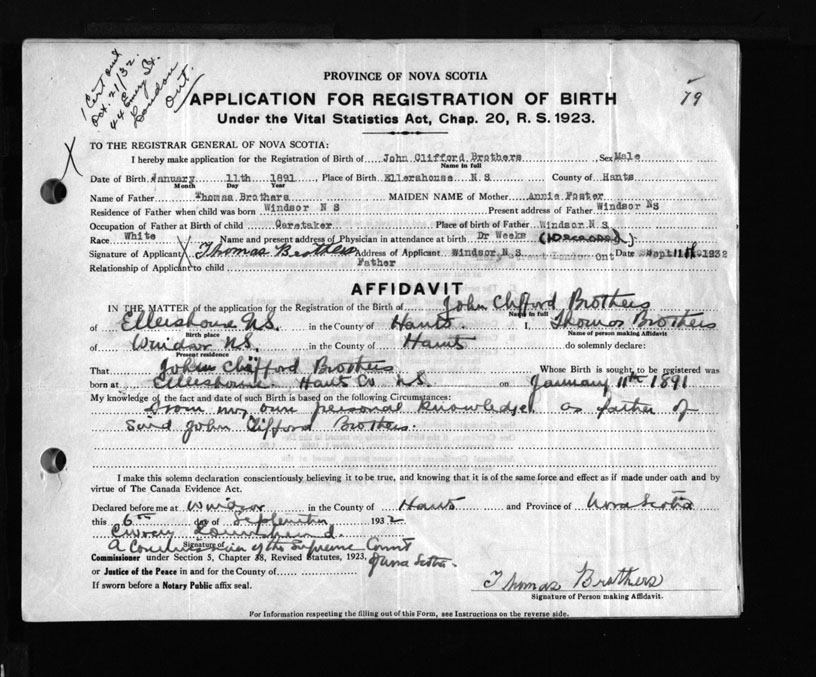 1 Cert out
Oct. 21/32.
44 Emery St.
London
Ont.
79
PROVINCE OF NOVA SCOTIA
APPLICATION FOR REGISTRATION OF BIRTH
Under the Vital Statistics Act, Chap. 20, R. S. 1923.
X
TO THE REGISTRAR GENERAL OF NOVA SCOTIA:
I hereby make application for the Registration of Birth of John Clifford Brothers Sex Male
Name in full
Date of Birth January 11th 1891 Place of Birth Ellershouse N S County of Hants
Month Day Year
Name of Father Thomas Brothers MAIDEN NAME of Mother Annie Foster
Residence of Father when child was born Windsor N S Present address of Father Windsor NS
Occupation of Father at Birth of child Caretaker Place of birth of Father Windsor N S
Race White Name and present address of Physician in attendance at birth Dr Weeks (Deceased)
Signature of Applicant X Thomas Brothers Address of Applicant Windsor N S Street London Ont Date Sept 1932
Relationship of Applicant to child Father
AFFIDAVIT
IN THE MATTER of the application for the Registration of the Birth of John Clifford Brothers
Name in full
of Ellershouse N.S. in the County of Hants. I, Thomas Brothers
Birth place Name of person making Affidavit
of Windsor N.S. in the County of Hants do solemnly declare:
Present residence
That John Clifford Brothers Whose Birth is sought to be registered was
born at Ellershouse. Hants Co N.S. on January 11th 1891
My knowledge of the fact and date of such Birth is based on the following Circumstances:
From my own personal knowledge as father of
Said John Clifford Brothers.
I make this solemn declaration conscientiously believing it to be true, and knowing that it is of the same force and effect as if made under oath and by
virtue of The Canada Evidence Act.
Declared before me at Windsor in the County of Hants and Province of Nova Scotia
this 6th day of September 1932
Signature of
A Commissioner of the Supreme Court
of Nova Scotia.
Commissioner under Section 5, Chapter 38, Revised Statutes, 1923,
or Justice of the Peace in and for the County of
If sworn before a Notary Public affix seal.
Thomas Brothers
Signature of Person making Affidavit.
For Information respecting the filling out of this Form, see Instructions on the reverse side.